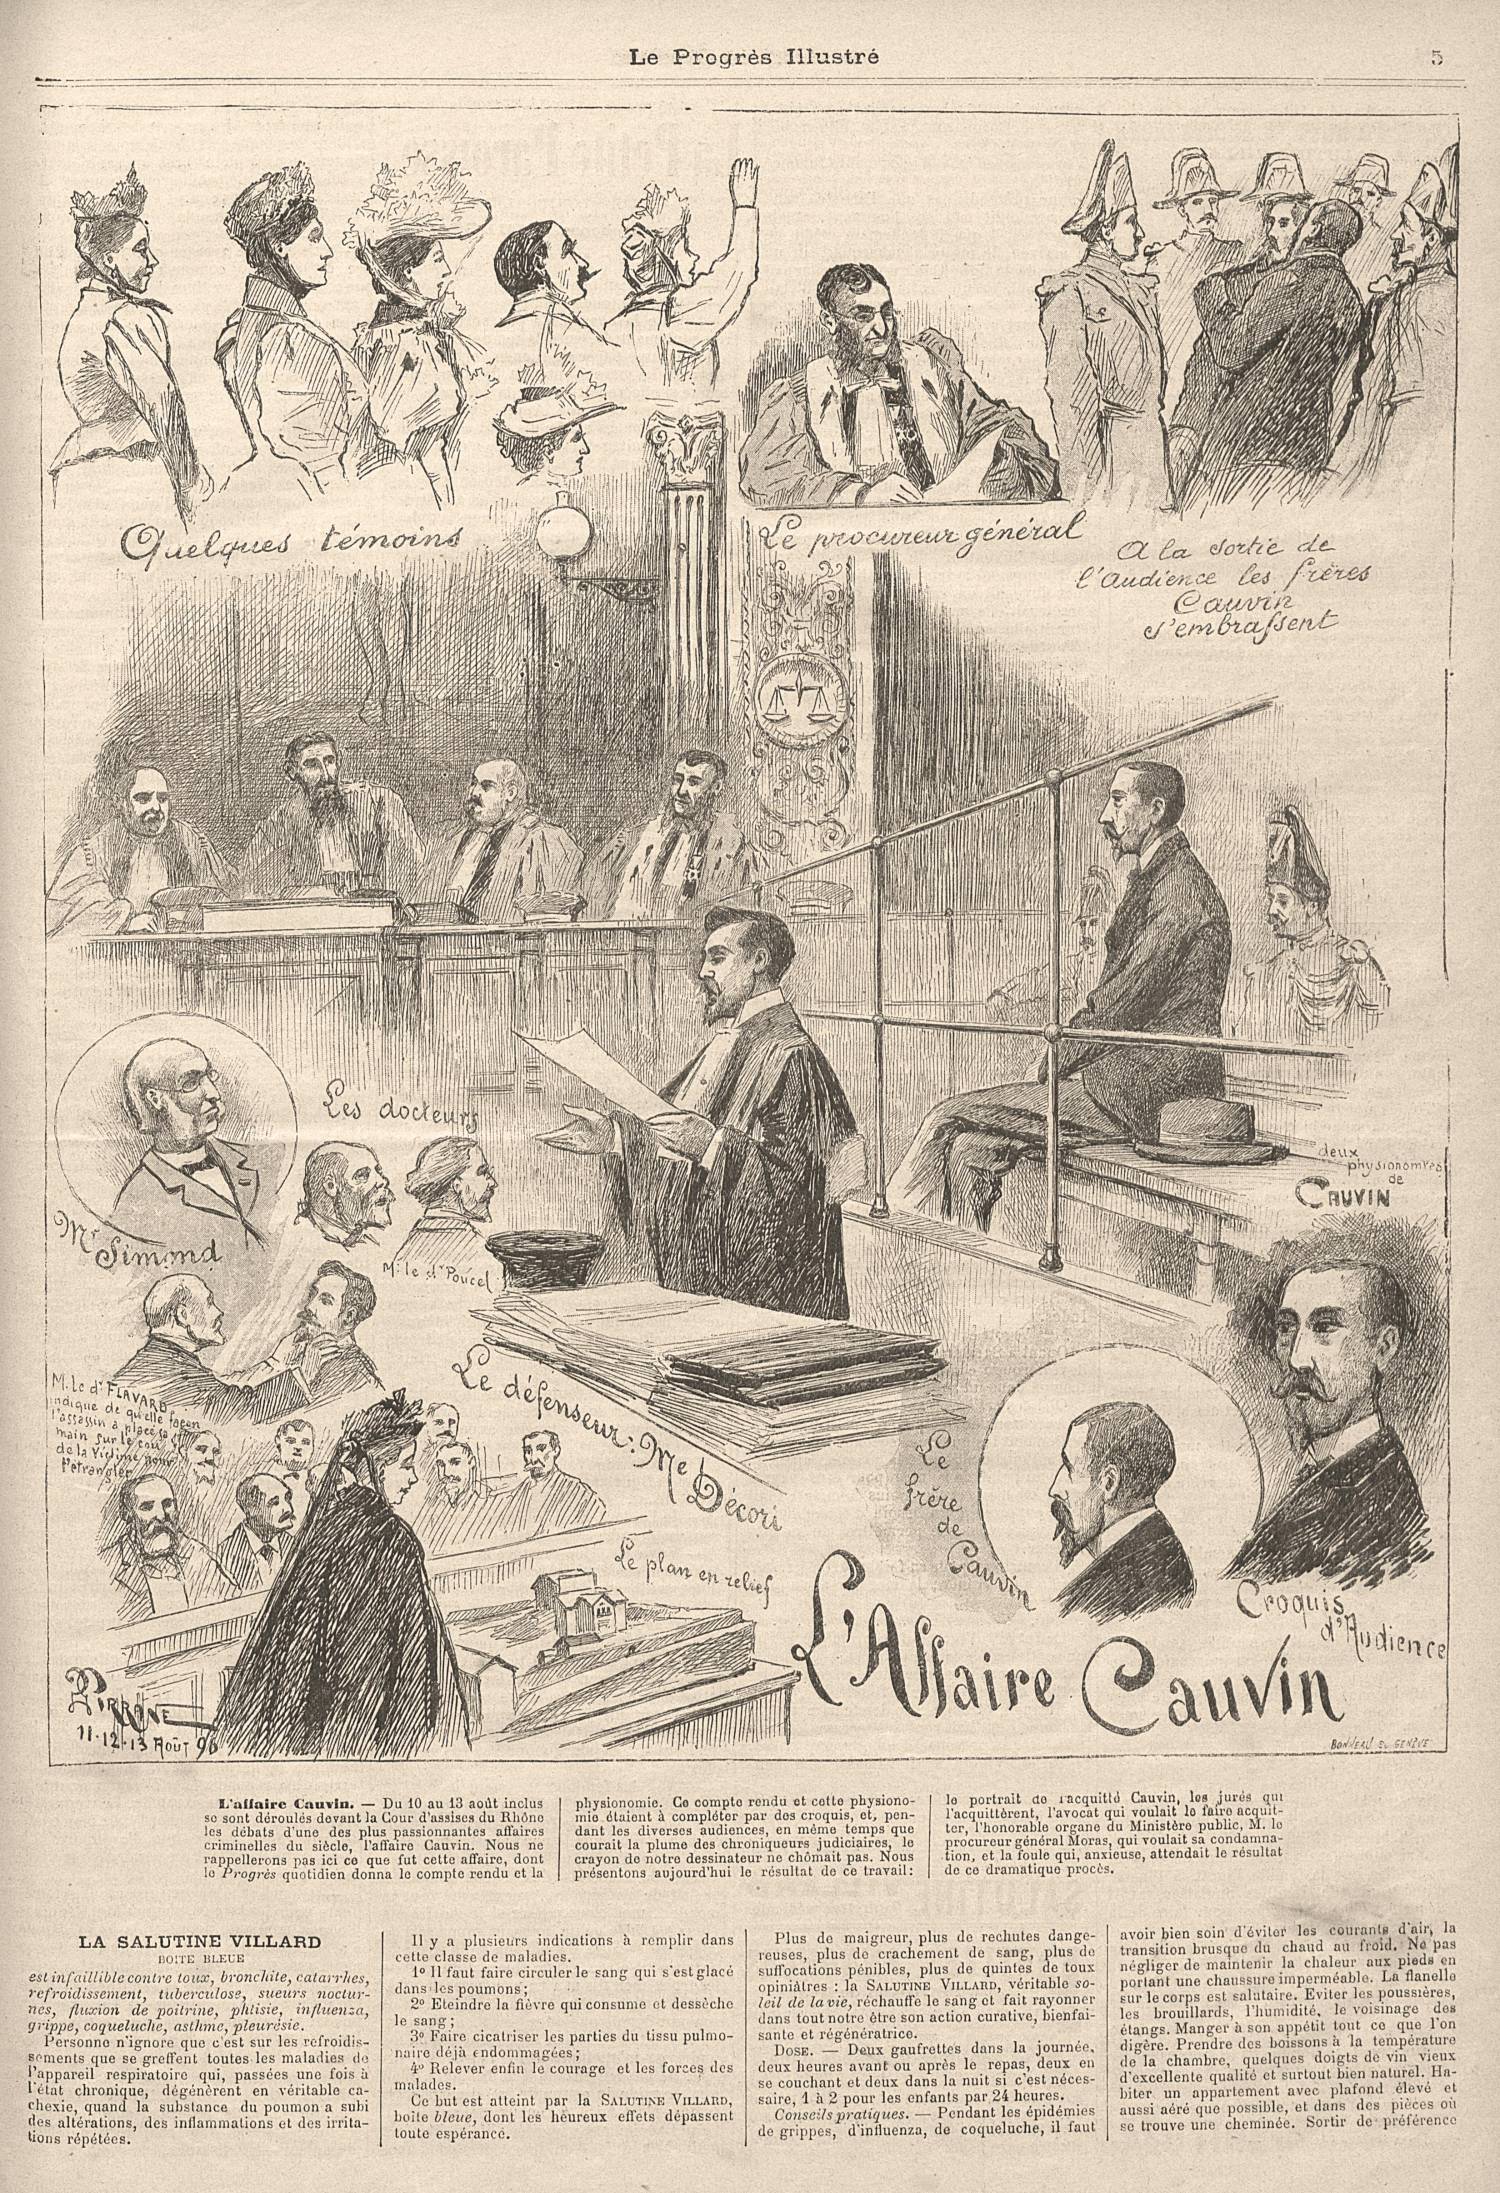 Le Progrès Illustré
5
Quelques témoins
Le procureur général
A la sortie de
l'Audience les frères
Cauvin
s'embrassent
Les docteurs
Mr Simond
M. le dr Poucel
deux
physionomies
de
CAUVIN
M. le dr FLAVARD
indique de quelle façon
l'assassin a placé sa
main sur le cou
de la Victime pour
l'étrangler
Le défenseur: Me Décori
Le
frère
de
Cauvin
Croquis
d'Audience
Le plan en relief
L'Affaire Cauvin
GIRRANE
11.12.13 Août 96
BONNEAU Sc GENÈVE
L'affaire Cauvin. — Du 10 au 13 août inclus
se sont déroulés devant la Cour d'assises du Rhône
les débats d'une des plus passionnantes affaires
criminelles du siècle, l'affaire Cauvin. Nous ne
rappellerons pas ici ce que fut cette affaire, dont
le Progrès quotidien donna le compte rendu et la
physionomie. Ce compte rendu et cette physiono-
mie étaient à compléter par des croquis, et, pen-
dant les diverses audiences, en même temps que
courait la plume des chroniqueurs judiciaires, le
crayon de notre dessinateur ne chômait pas. Nous
présentons aujourd'hui le résultat de ce travail:
le portrait de l'acquitté Cauvin, les jurés qui
l'acquittèrent, l'avocat qui voulait le faire acquit-
ter, l'honorable organe du Ministère public, M. le
procureur général Moras, qui voulait sa condamna-
tion, et la foule qui, anxieuse, attendait le résultat
de ce dramatique procès.
LA SALUTINE VILLARD
BOITE BLEUE
est infaillible contre toux, bronchite, catarrhes,
refroidissement, tuberculose, sueurs noctur-
nes, fluxion de poitrine, phtisie, influenza,
grippe, coqueluche, asthme, pleurésie.
Personne n'ignore que c'est sur les refroidis-
sements que se greffent toutes les maladies de
l'appareil respiratoire qui, passées une fois à
l'état chronique, dégénèrent en véritable ca-
chexie, quand la substance du poumon a subi
des altérations, des inflammations et des irrita-
tions répétées.
Il y a plusieurs indications à remplir dans
cette classe de maladies.
1° Il faut faire circuler le sang qui s'est glacé
dans les poumons;
2° Eteindre la fièvre qui consume et dessèche
le sang;
3° Faire cicatriser les parties du tissu pulmo-
naire déjà endommagées;
4° Relever enfin le courage et les forces des
malades.
Ce but est atteint par la SALUTINE VILLARD,
boîte bleue, dont les heureux effets dépassent
toute espérance.
Plus de maigreur, plus de rechutes dange-
reuses, plus de crachement de sang, plus de
suffocations pénibles, plus de quintes de toux
opiniâtres : la SALUTINE VILLARD, véritable so-
leil de la vie, réchauffe le sang et fait rayonner
dans tout notre être son action curative, bienfai-
sante et régénératrice.
DOSE. — Deux gaufrettes dans la journée,
deux heures avant ou après le repas, deux en
se couchant et deux dans la nuit si c'est néces-
saire, 1 à 2 pour les enfants par 24 heures.
Conseils pratiques. — Pendant les épidémies
de grippes, d'influenza, de coqueluche, il faut
avoir bien soin d'éviter les courants d'air, la
transition brusque du chaud au froid. Ne pas
négliger de maintenir la chaleur aux pieds en
portant une chaussure imperméable. La flanelle
sur le corps est salutaire. Eviter les poussières,
les brouillards, l'humidité, le voisinage des
étangs. Manger à son appétit tout ce que l'on
digère. Prendre des boissons à la température
de la chambre, quelques doigts de vin vieux
d'excellente qualité et surtout bien naturel. Ha-
biter un appartement avec plafond élevé et
aussi aéré que possible, et dans des pièces où
se trouve une cheminée. Sortir de préférence